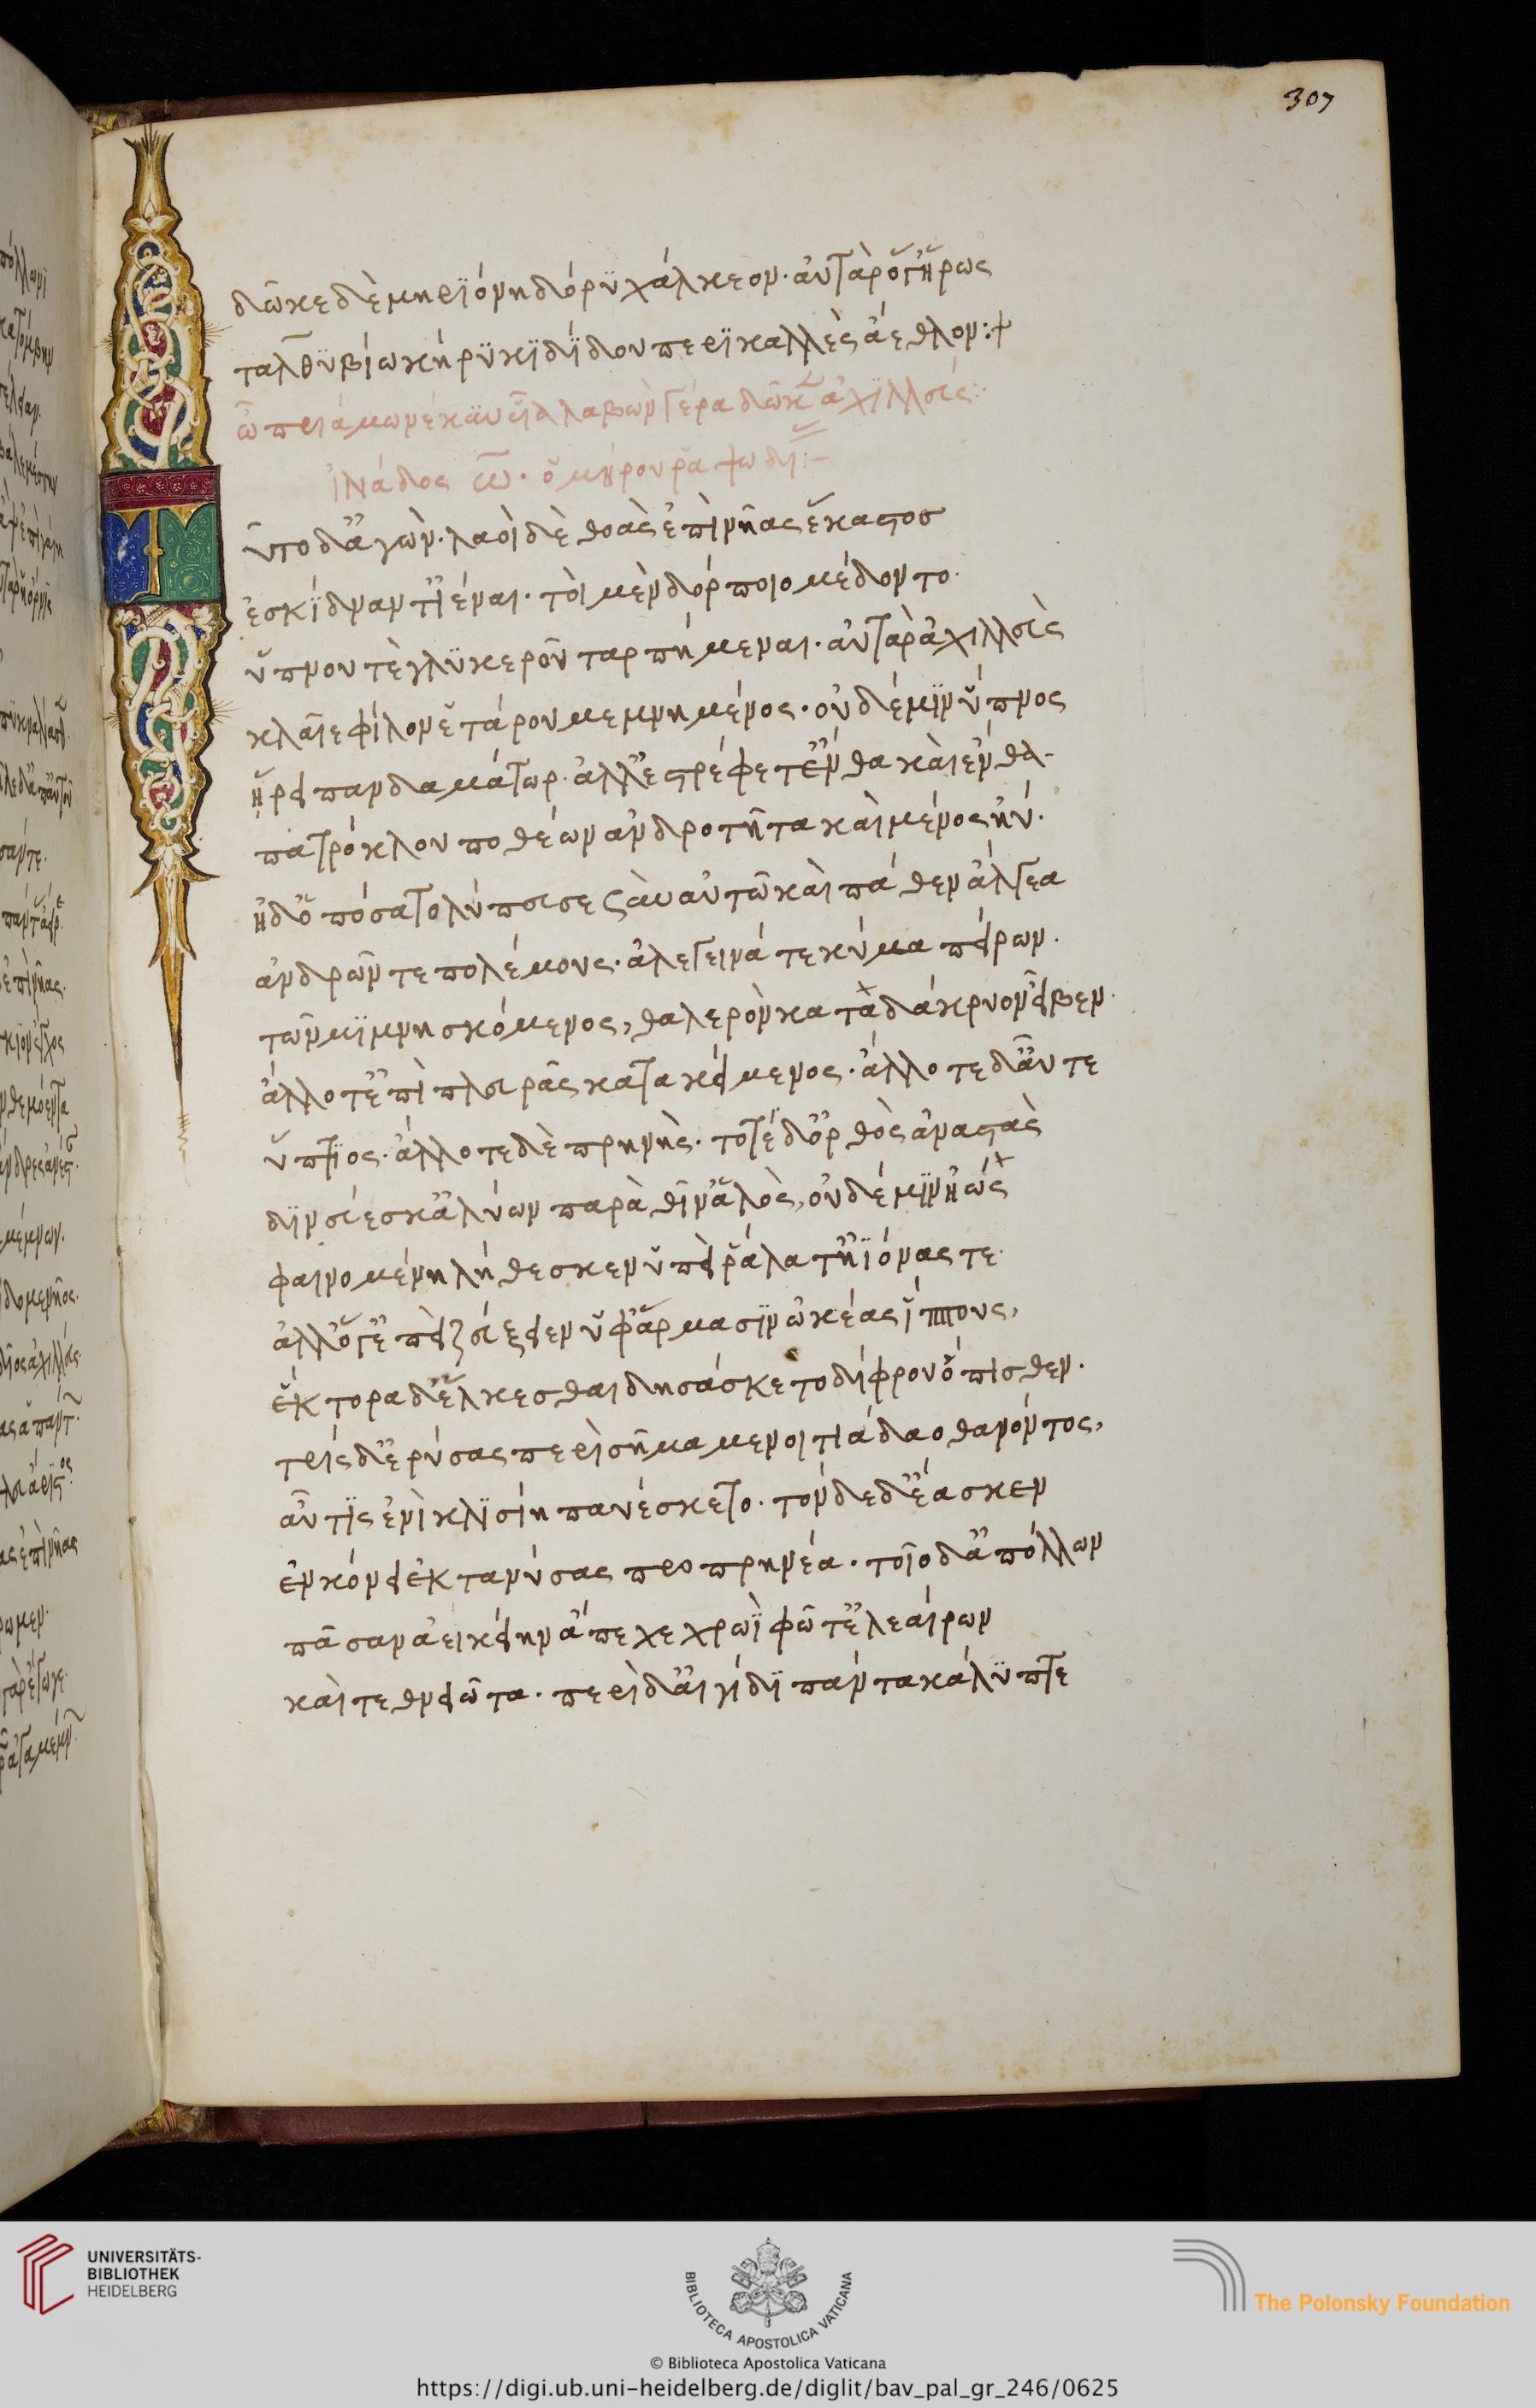 307
δῶκε δὲ μηριόνη δόρϋ χάλκεον· ἀυτὰρ ὅγ' ἥρως
ταλθϋβίω κήρϋκϊ δίδου περικαλλὲς ἄεθλον:
ἰλιάδος ω· ὁμήρου ῥαψωδι:
λῦτο δ' ἀγὼν· λαοὶ δὲ θοὰς ἐπὶ νῆας ἕκαστος
ἐσκίδναντ' ἰέναι· τοὶ μὲν δόρποιο μέδοντο·
ὕπνου τὲ γλϋκεροῦ ταρπήμεναι· ἀυτὰρ ἀχιλλεὺς
κλαῖε φίλου ἑτάρου μεμνημένος· οὐδέ μϊν ὕπνος
ἥρει πανδαμάτωρ· ἀλλ' ἐστρέφετ' ἔνθα καὶ ἔνθα·
πατρόκλου ποθέων ἀνδροτῆτα καὶ μένος ἠύ·
ἠδ' ὁπόσα τολύπευσε σὺν αὐτῶ καὶ πάθεν ἄλγεα
ἀνδρῶν τε πολέμους· ἀλεγεινά τε κύματα πείρων·
τῶν μϊμνησκόμενος, θαλερὸν κατὰ δάκρυον εἶβεν·
ἄλλοτ' ἐπὶ πλευρᾶς κατακείμενος· ἄλλοτε δ' αὖτε
ὕπτϊος· ἄλλοτε δὲ πρηνὴς· τοτὲ δ' ὀρθὸς ἀναστὰς
δϊνεύεσκ' ἀλύων παρὰ θῖν' ἁλὸς, οὐδέ μϊν ἠὼς
φαινομένη λήθεσκεν ὑπεὶρ ἅλα τ' ἠϊόνας τε·
ἀλλ' ὅγ' ἐπεὶ ζεύξειεν ὑφ' ἅρμασϊν ὠκέας ἵππους,
ἕκτορα δ' ἕλκεσθαι δησάσκετο δίφρου ὄπισθεν·
τρὶς δ' ἐρύσας περὶ σῆμα μενοιτιάδαο θανόντος,
αὖτϊς ἐνὶ κλϊσίη παυέσκετο· τὸν δὲ δ' ἔασκεν
ἐν κόνει ἐκτανύσας προπρηνέα· τοῖο δ' ἀπόλλων
πᾶσαν ἀεικείην ἄπεχε χροῒ φῶτ' ἐλεαίρων
καὶ τεθνειῶτα· περὶ δ' αἰγίδϊ πάντα κάλϋπτε
UNIVERSITÄTS-
BIBLIOTHEK
HEIDELBERG
BIBLIOTECA APOSTOLICA VATICANA
The Polonsky Foundation
© Biblioteca Apostolica Vaticana
https://digi.ub.uni-heidelberg.de/diglit/bav_pal_gr_246/0625